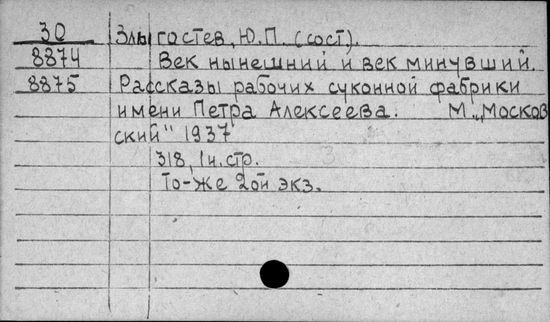 30 Злыгостев, Ю.П. (сост).
8874 Век нынешний и век минувший.
8875 Рассказы рабочих суконной фабрики
имени Петра Алексеева. М. „Москов
ский" 1937
318, 1н.стр.
То-же 2ой экз.